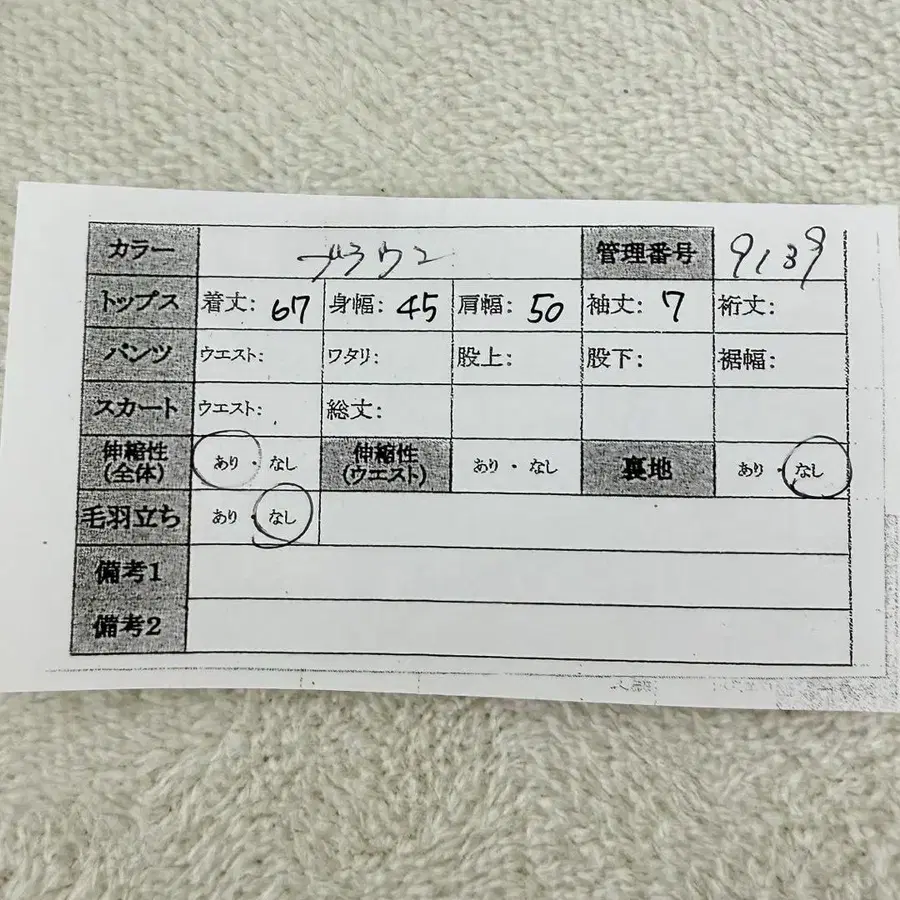 カラー ブラウン 管理番号 9139
トップス 着丈: 67 身幅: 45 肩幅: 50 袖丈: 7 裄丈:
パンツ ウエスト: ワタリ: 股上: 股下: 裾幅:
スカート ウエスト: 総丈:
伸縮性(全体) あり・なし 伸縮性(ウエスト) あり・なし 裏地 あり・なし
毛羽立ち あり・なし
備考1
備考2